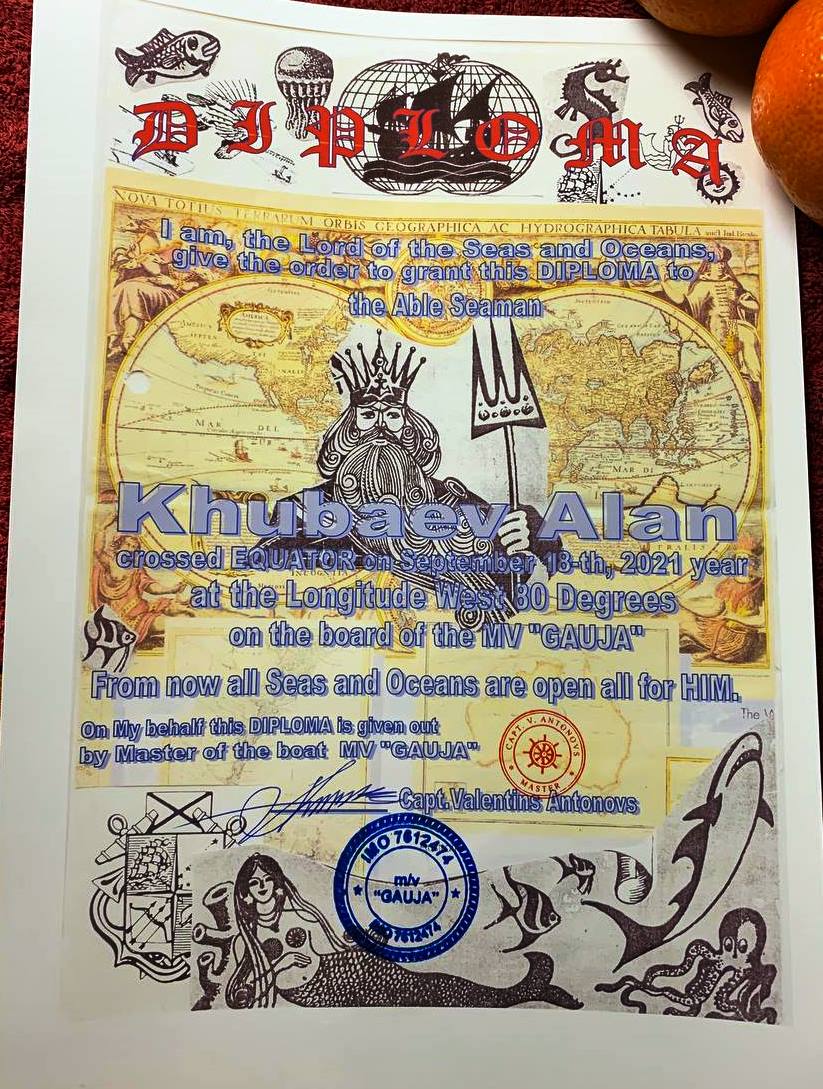 DIPLOMA
NOVA TOTIUS TERRARUM ORBIS GEOGRAPHICA AC HYDROGRAPHICA TABULA
I am, the Lord of the Seas and Oceans,
give the order to grant this DIPLOMA to
the Able Seaman
AMERICA
MAR DEL
MAR DI
Khubaev Alan
crossed EQUATOR on September 18-th, 2021 year
at the Longitude West 80 Degrees
on the board of the MV "GAUJA"
From now all Seas and Oceans are open all for HIM.
The
On My behalf this DIPLOMA is given out
by Master of the boat MV "GAUJA"
CAPT. V. ANTONOVS
MASTER
Capt.Valentins Antonovs
IMO 7612474
m/v
"GAUJA"
IMO 7612474